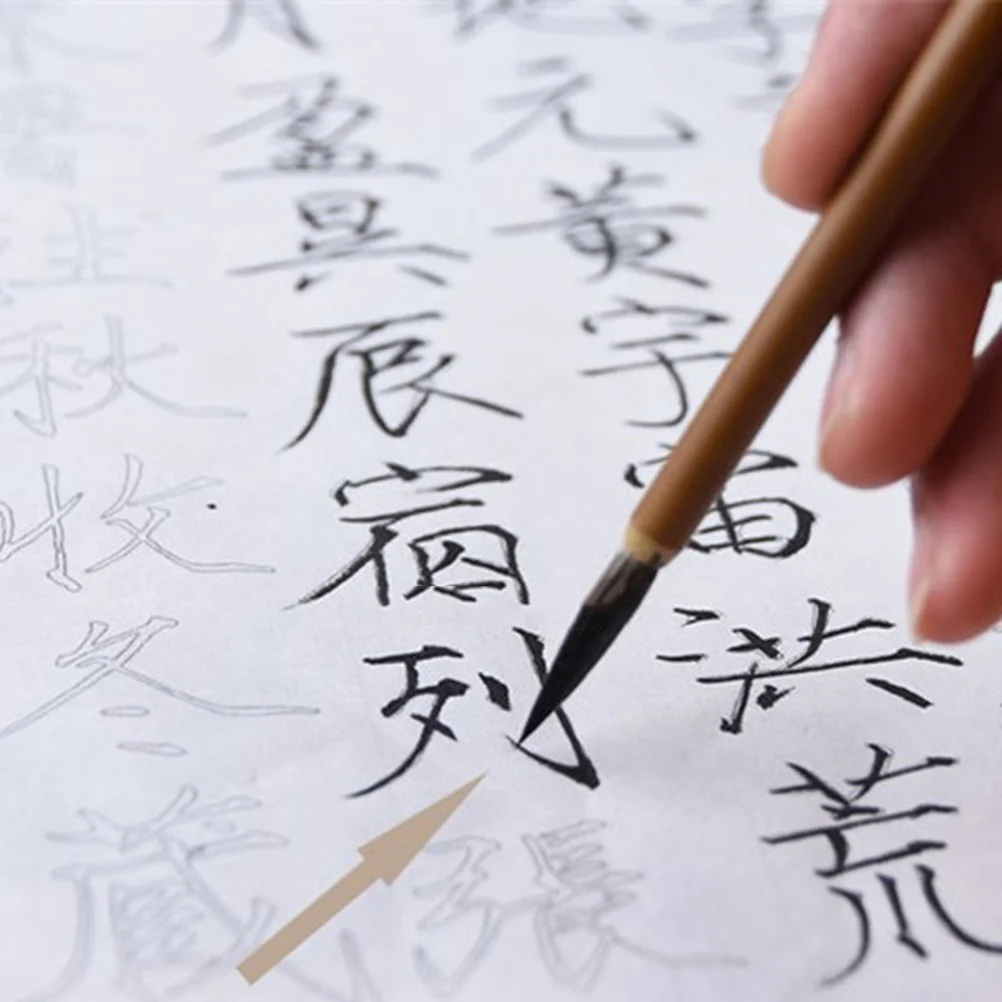 地元黃宇宙洪荒
月盈昃辰宿列張
暑往秋收冬藏